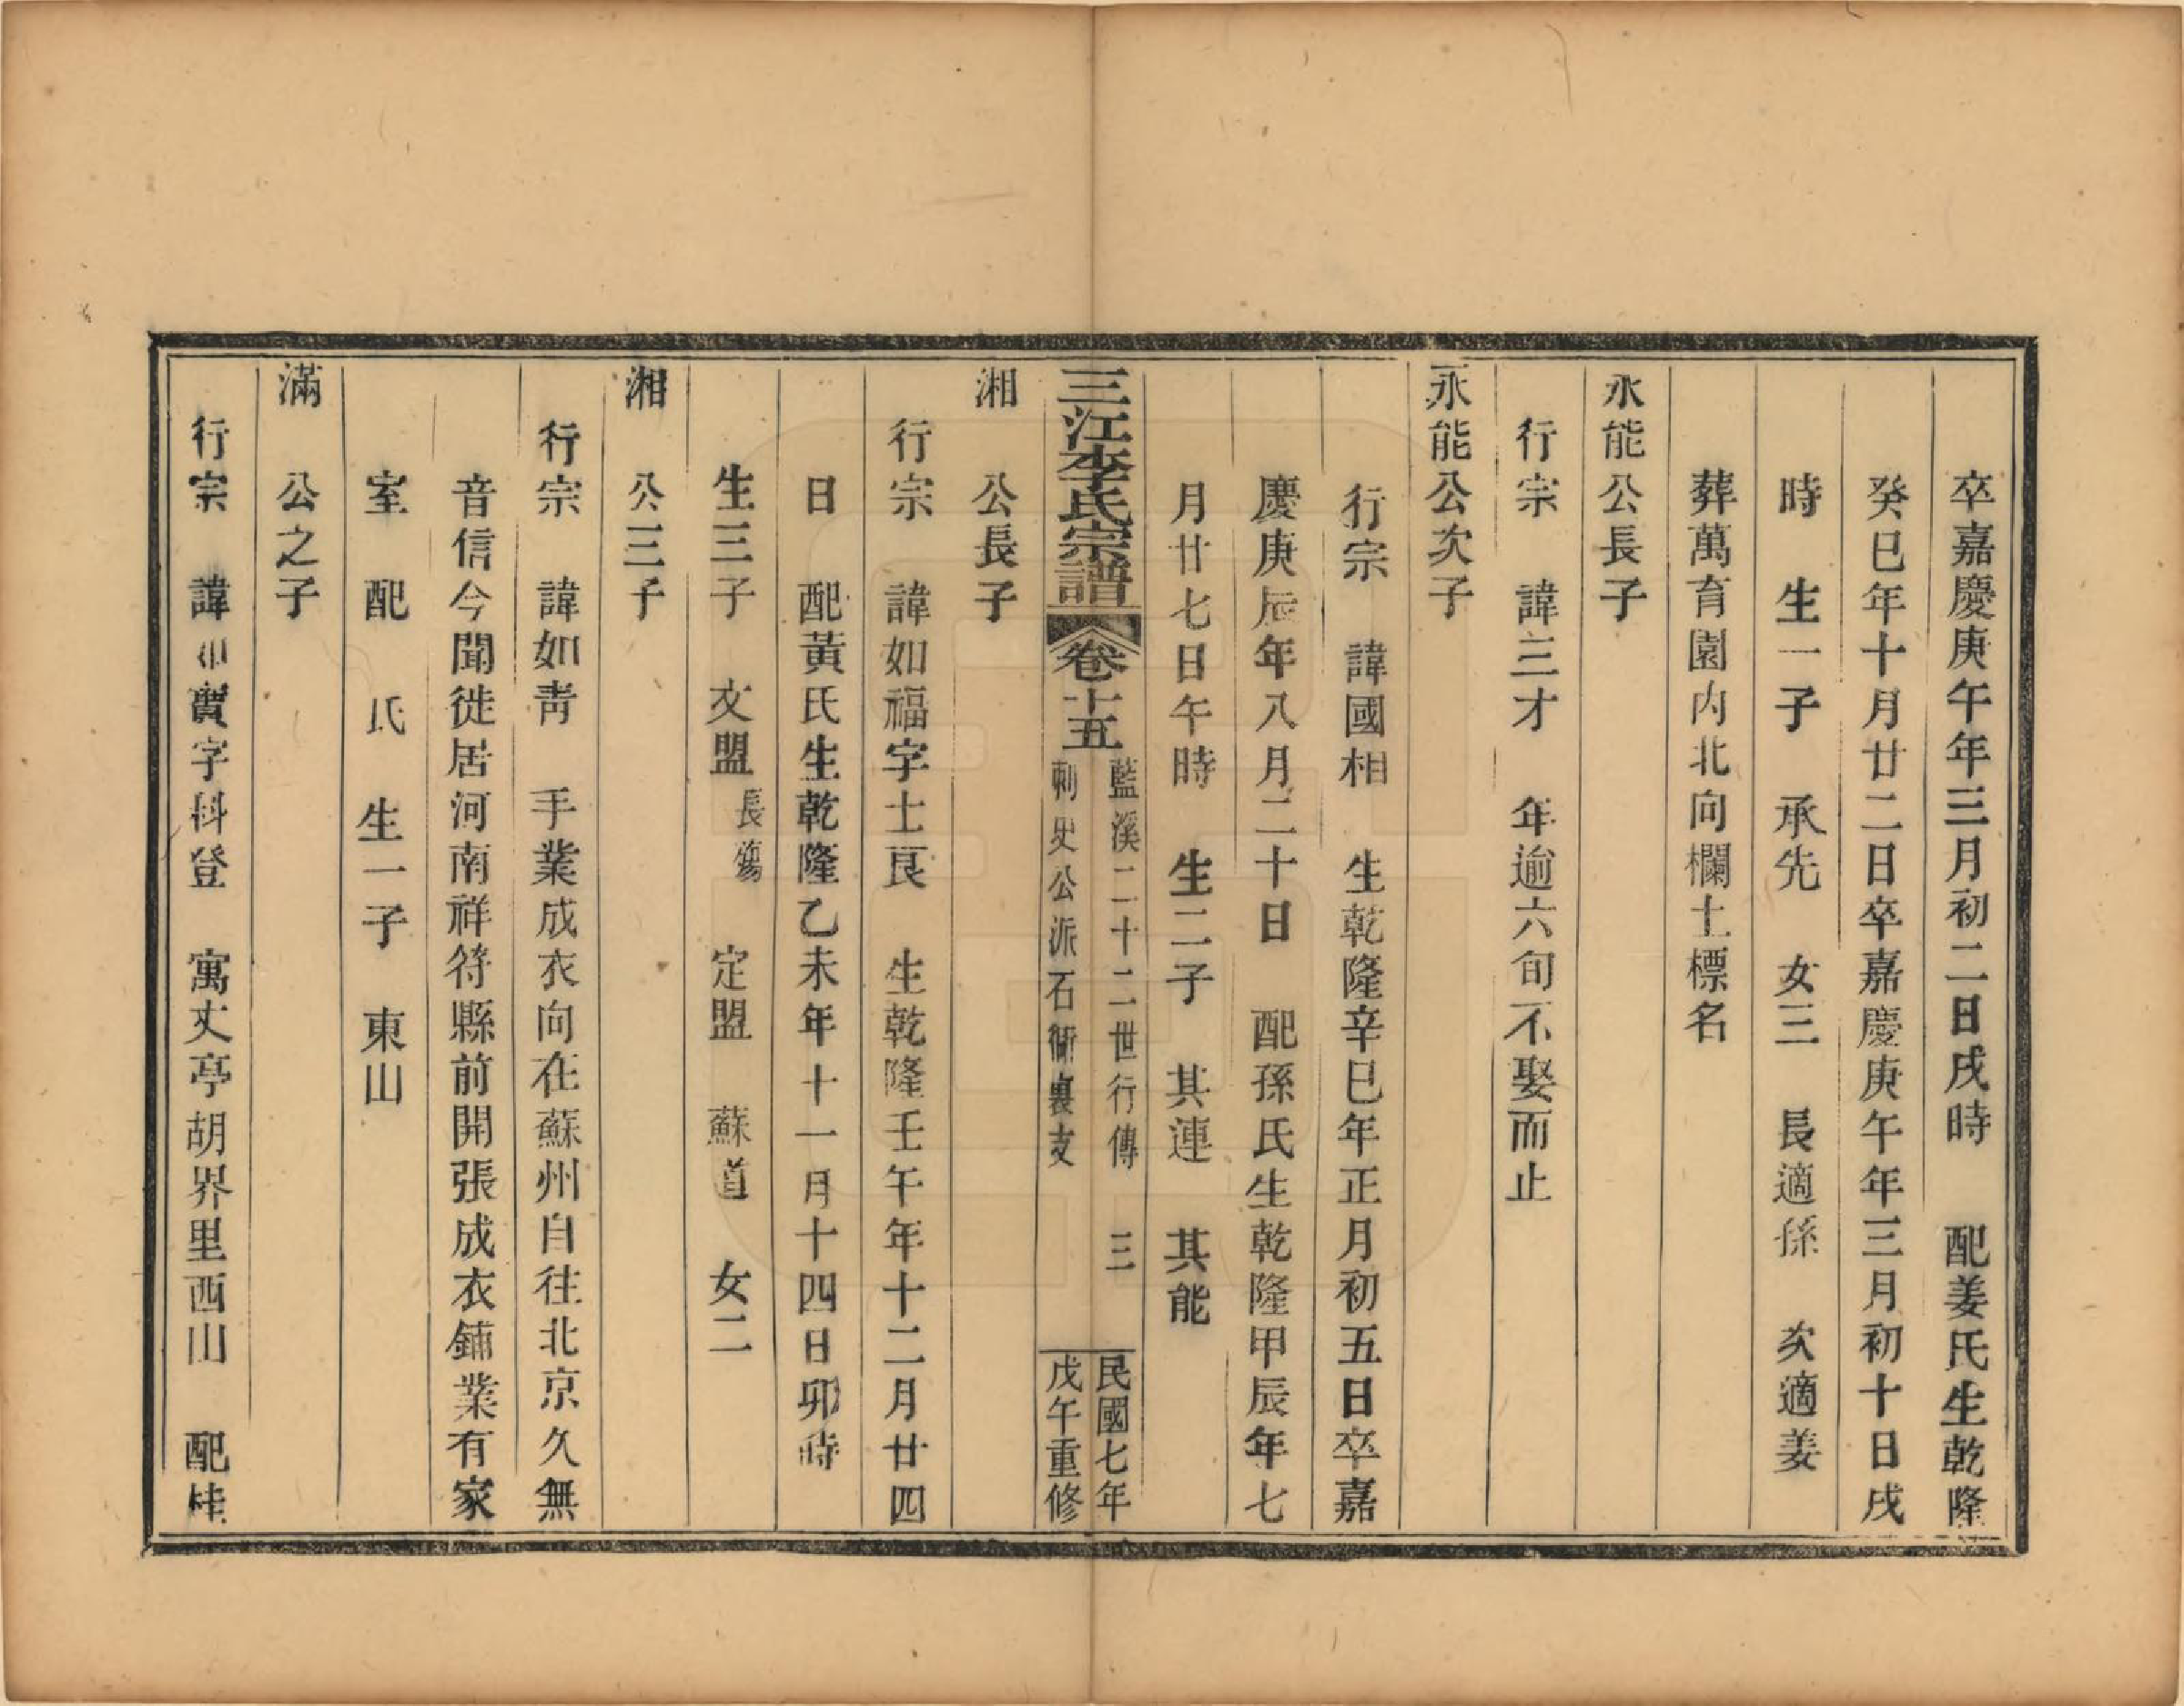 卒嘉慶庚午年三月初二日戌時　配姜氏生乾隆
癸巳年十月廿二日卒嘉慶庚午年三月初十日戌
時　生一子　承先　女三　長適孫　次適姜
葬萬育園內北向欄土標名
永能公長子
行宗　諱三才　年逾六旬不娶而止
永能公次子
行宗　諱國相　生乾隆辛巳年正月初五日卒嘉
慶庚辰年八月二十日　配孫氏生乾隆甲辰年七
月廿七日午時　生二子　其連　其能
三江李氏宗譜
卷十五
藍溪二十二世行傳　三
刺史公派石衕裏支
民國七年
戊午重修
湘　公長子
行宗　諱如福字士良　生乾隆壬午年十二月廿四
日　配黃氏生乾隆乙未年十一月十四日卯時
生三子　文盟長殤　定盟　蘇道　女二
湘　公三子
行宗　諱如青　手業成衣向在蘇州自往北京久無
音信今聞徙居河南祥符縣前開張成衣鋪業有家
室　配　氏　生一子　東山
滿　公之子
行宗　諱寶字科登　寓丈亭胡界里西山　配桂